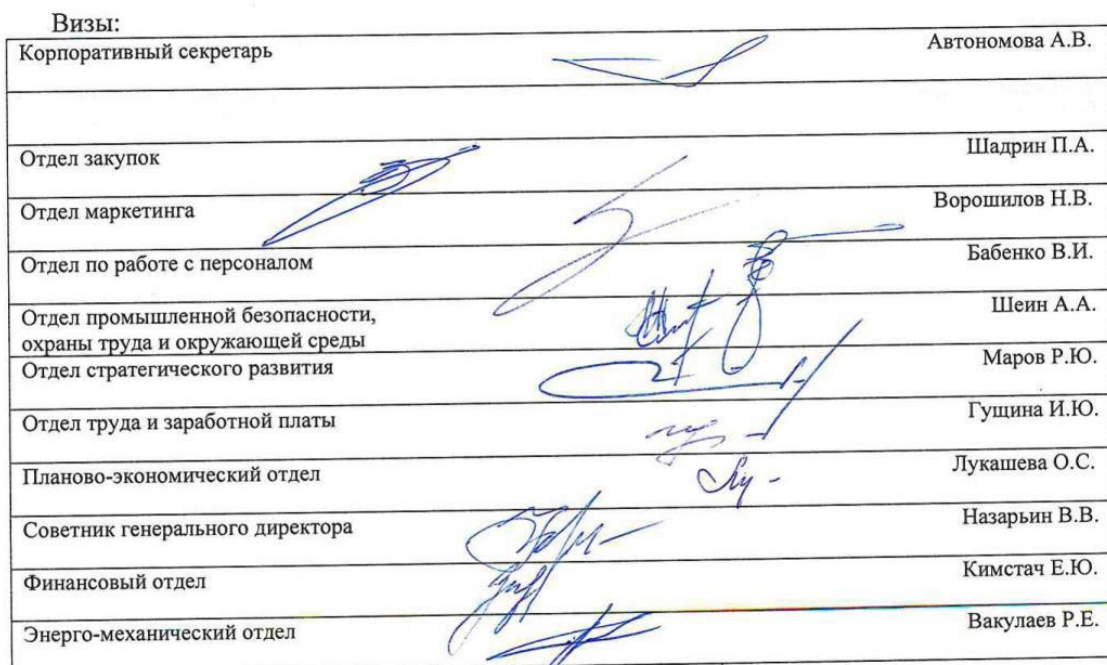 Визы:
Корпоративный секретарь Автономова А.В.
Отдел закупок Шадрин П.А.
Отдел маркетинга Ворошилов Н.В.
Отдел по работе с персоналом Бабенко В.И.
Отдел промышленной безопасности, Шеин А.А.
охраны труда и окружающей среды
Отдел стратегического развития Маров Р.Ю.
Отдел труда и заработной платы Гущина И.Ю.
Планово-экономический отдел Лукашева О.С.
Советник генерального директора Назарьин В.В.
Финансовый отдел Кимстач Е.Ю.
Энерго-механический отдел Вакулаев Р.Е.